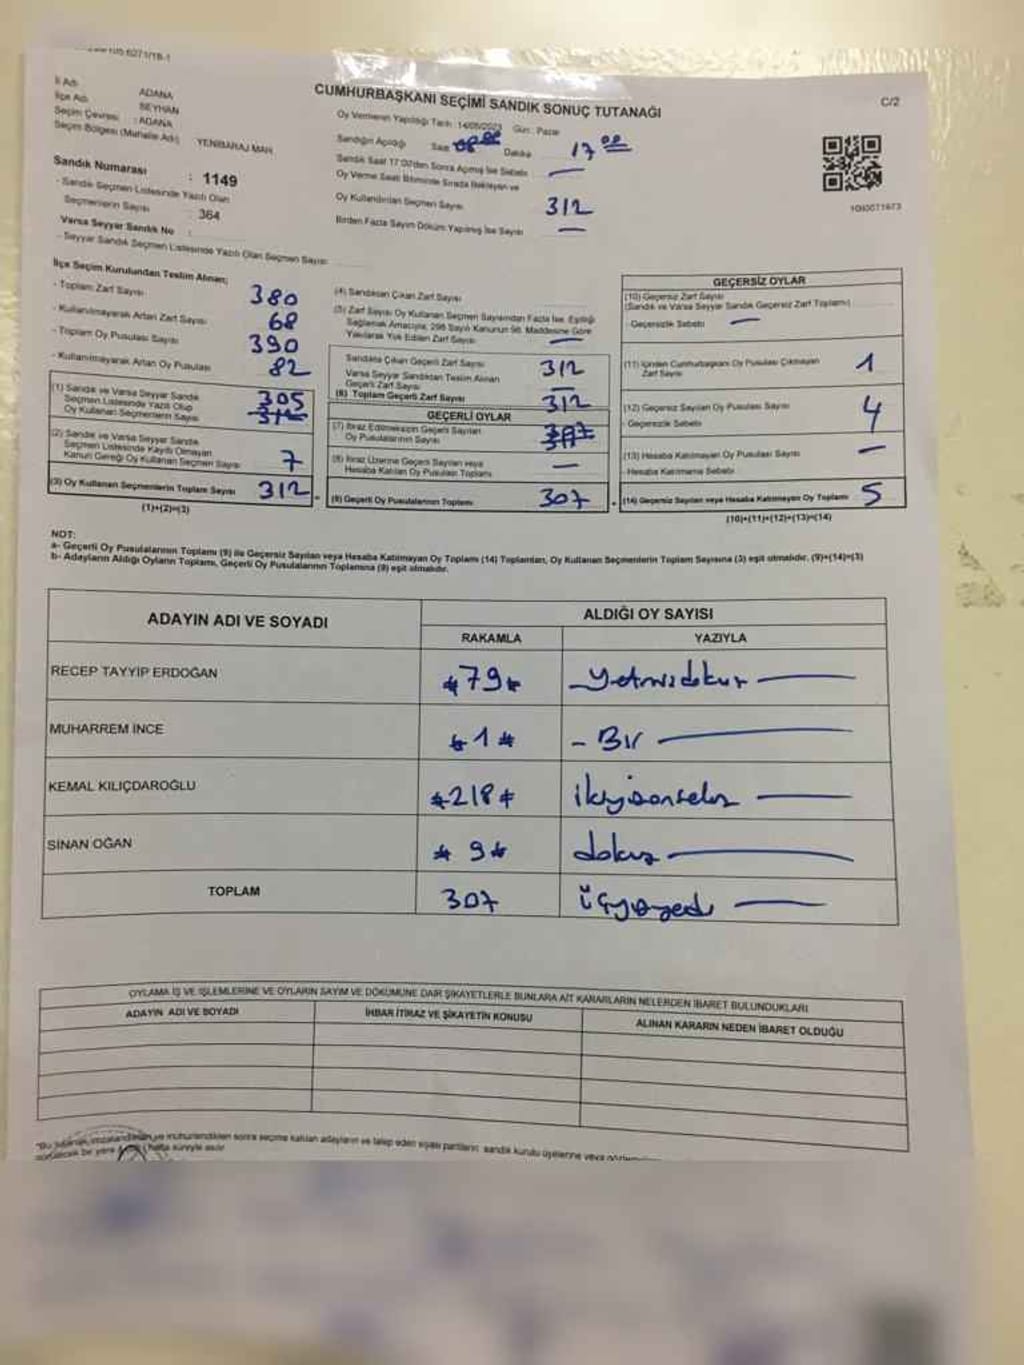 CUMHURBAŞKANI SEÇİMİ SANDIK SONUÇ TUTANAĞI
C/2
İl Adı ADANA
İlçe Adı SEYHAN
Seçim Çevresi : ADANA
Seçim Bölgesi (Mahalle Adı) YENİBARAJ MAH.
Oy Vermenin Yapıldığı Tarih : 14/05/2023 Gün : Pazar
Sandığın Açıldığı Saat Dakika 17 00
Sandık Saat 17:00'den Sonra Açılmış İse Sebebi —
Oy Verme Saati Bitiminde Sırada Bekleyen ve
Oy Kullandırılan Seçmen Sayısı 312
Birden Fazla Sayım Döküm Yapılmış İse Sayısı —
Sandık Numarası : 1149
- Sandık Seçmen Listesinde Yazılı Olan
Seçmenlerin Sayısı 364
Varsa Seyyar Sandık No :
- Seyyar Sandık Seçmen Listesinde Yazılı Olan Seçmen Sayısı
İlçe Seçim Kurulundan Teslim Alınan;
- Toplam Zarf Sayısı 380
- Kullanılmayarak Artan Zarf Sayısı 68
- Toplam Oy Pusulası Sayısı 390
- Kullanılmayarak Artan Oy Pusulası 82
(1) Sandık ve Varsa Seyyar Sandık
Seçmen Listesinde Yazılı Olup
Oy Kullanan Seçmenlerin Sayısı 305 312
(2) Sandık ve Varsa Seyyar Sandık
Seçmen Listesinde Kaydı Olmayan
Kanun Gereği Oy Kullanan Seçmen Sayısı 7
(3) Oy Kullanan Seçmenlerin Toplam Sayısı 312
(1)+(2)=(3)
(4) Sandıktan Çıkan Zarf Sayısı
(5) Zarf Sayısı Oy Kullanan Seçmen Sayısından Fazla İse, Eşitliği
Sağlamak Amacıyla, 298 Sayılı Kanunun 98. Maddesine Göre
Yakılarak Yok Edilen Zarf Sayısı —
Sandıkta Çıkan Geçerli Zarf Sayısı 312
Varsa Seyyar Sandıktan Teslim Alınan
Geçerli Zarf Sayısı —
(6) Toplam Geçerli Zarf Sayısı 312
GEÇERLİ OYLAR
(7) İtiraz Edilmeksizin Geçerli Sayılan
Oy Pusulalarının Sayısı 307
(8) İtiraz Üzerine Geçerli Sayılan veya
Hesaba Katılan Oy Pusulası Toplamı —
(9) Geçerli Oy Pusulalarının Toplamı 307
GEÇERSİZ OYLAR
(10) Geçersiz Zarf Sayısı
(Sandık ve Varsa Seyyar Sandık Geçersiz Zarf Toplamı)
- Geçersizlik Sebebi —
(11) İçinden Cumhurbaşkanı Oy Pusulası Çıkmayan
Zarf Sayısı 1
(12) Geçersiz Sayılan Oy Pusulası Sayısı 4
- Geçersizlik Sebebi
(13) Hesaba Katılmayan Oy Pusulası Sayısı —
- Hesaba Katılmama Sebebi
(14) Geçersiz Sayılan veya Hesaba Katılmayan Oy Toplamı 5
(10)+(11)+(12)+(13)=(14)
NOT:
a- Geçerli Oy Pusulalarının Toplamı (9) ile Geçersiz Sayılan veya Hesaba Katılmayan Oy Toplamı (14) Toplamları, Oy Kullanan Seçmenlerin Toplam Sayısına (3) eşit olmalıdır. (9)+(14)=(3)
b- Adayların Aldığı Oyların Toplamı, Geçerli Oy Pusulalarının Toplamına (9) eşit olmalıdır.
ADAYIN ADI VE SOYADI ALDIĞI OY SAYISI
RAKAMLA YAZIYLA
RECEP TAYYİP ERDOĞAN 79 yetmişdokuz
MUHARREM İNCE 1 - Bir
KEMAL KILIÇDAROĞLU 218 ikiyüzonsekiz
SİNAN OĞAN 9 dokuz
TOPLAM 307 üçyüzyedi
OYLAMA İŞ VE İŞLEMLERİNE VE OYLARIN SAYIM VE DÖKÜMÜNE DAİR ŞİKAYETLERLE BUNLARA AİT KARARLARIN NELERDEN İBARET BULUNDUKLARI
ADAYIN ADI VE SOYADI İHBAR İTİRAZ VE ŞİKAYETİN KONUSU ALINAN KARARIN NEDEN İBARET OLDUĞU